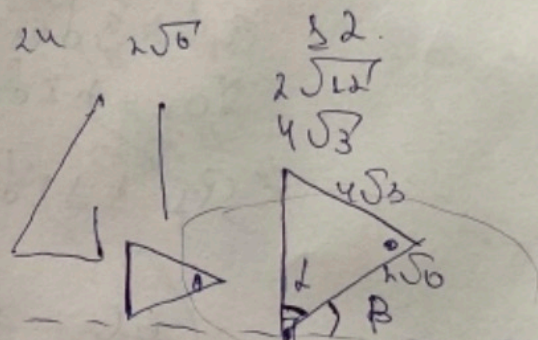 24 2√6 12.
2√12
4√3
4√3
α
2√6
β